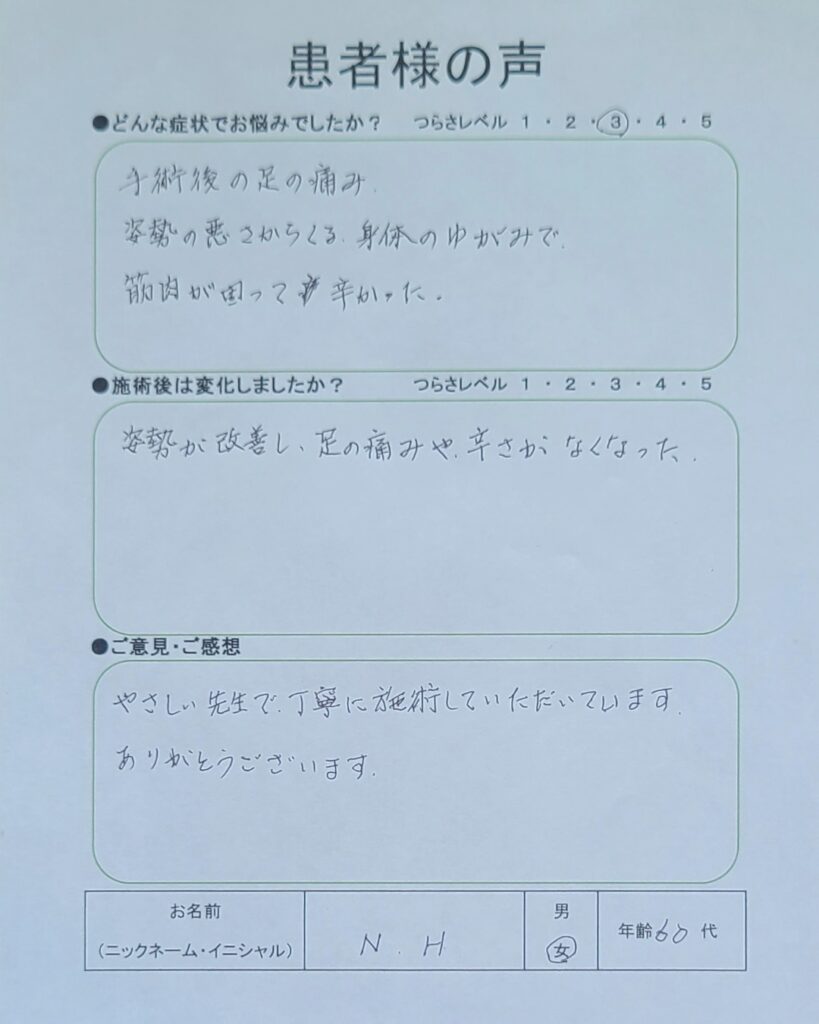 患者様の声
●どんな症状でお悩みでしたか？ つらさレベル 1 ・ 2 ・ 3 ・ 4 ・ 5
手術後の足の痛み.
姿勢の悪さからくる、身体のゆがみで、
筋肉が固って 辛かった.
●施術後は変化しましたか？ つらさレベル 1 ・ 2 ・ 3 ・ 4 ・ 5
姿勢が改善し、足の痛みや、辛さが なくなった.
●ご意見・ご感想
やさしい先生で、丁寧に施術していただいています.
ありがとうございます.
お名前
(ニックネーム・イニシャル)
N . H
男
女
年齢60代